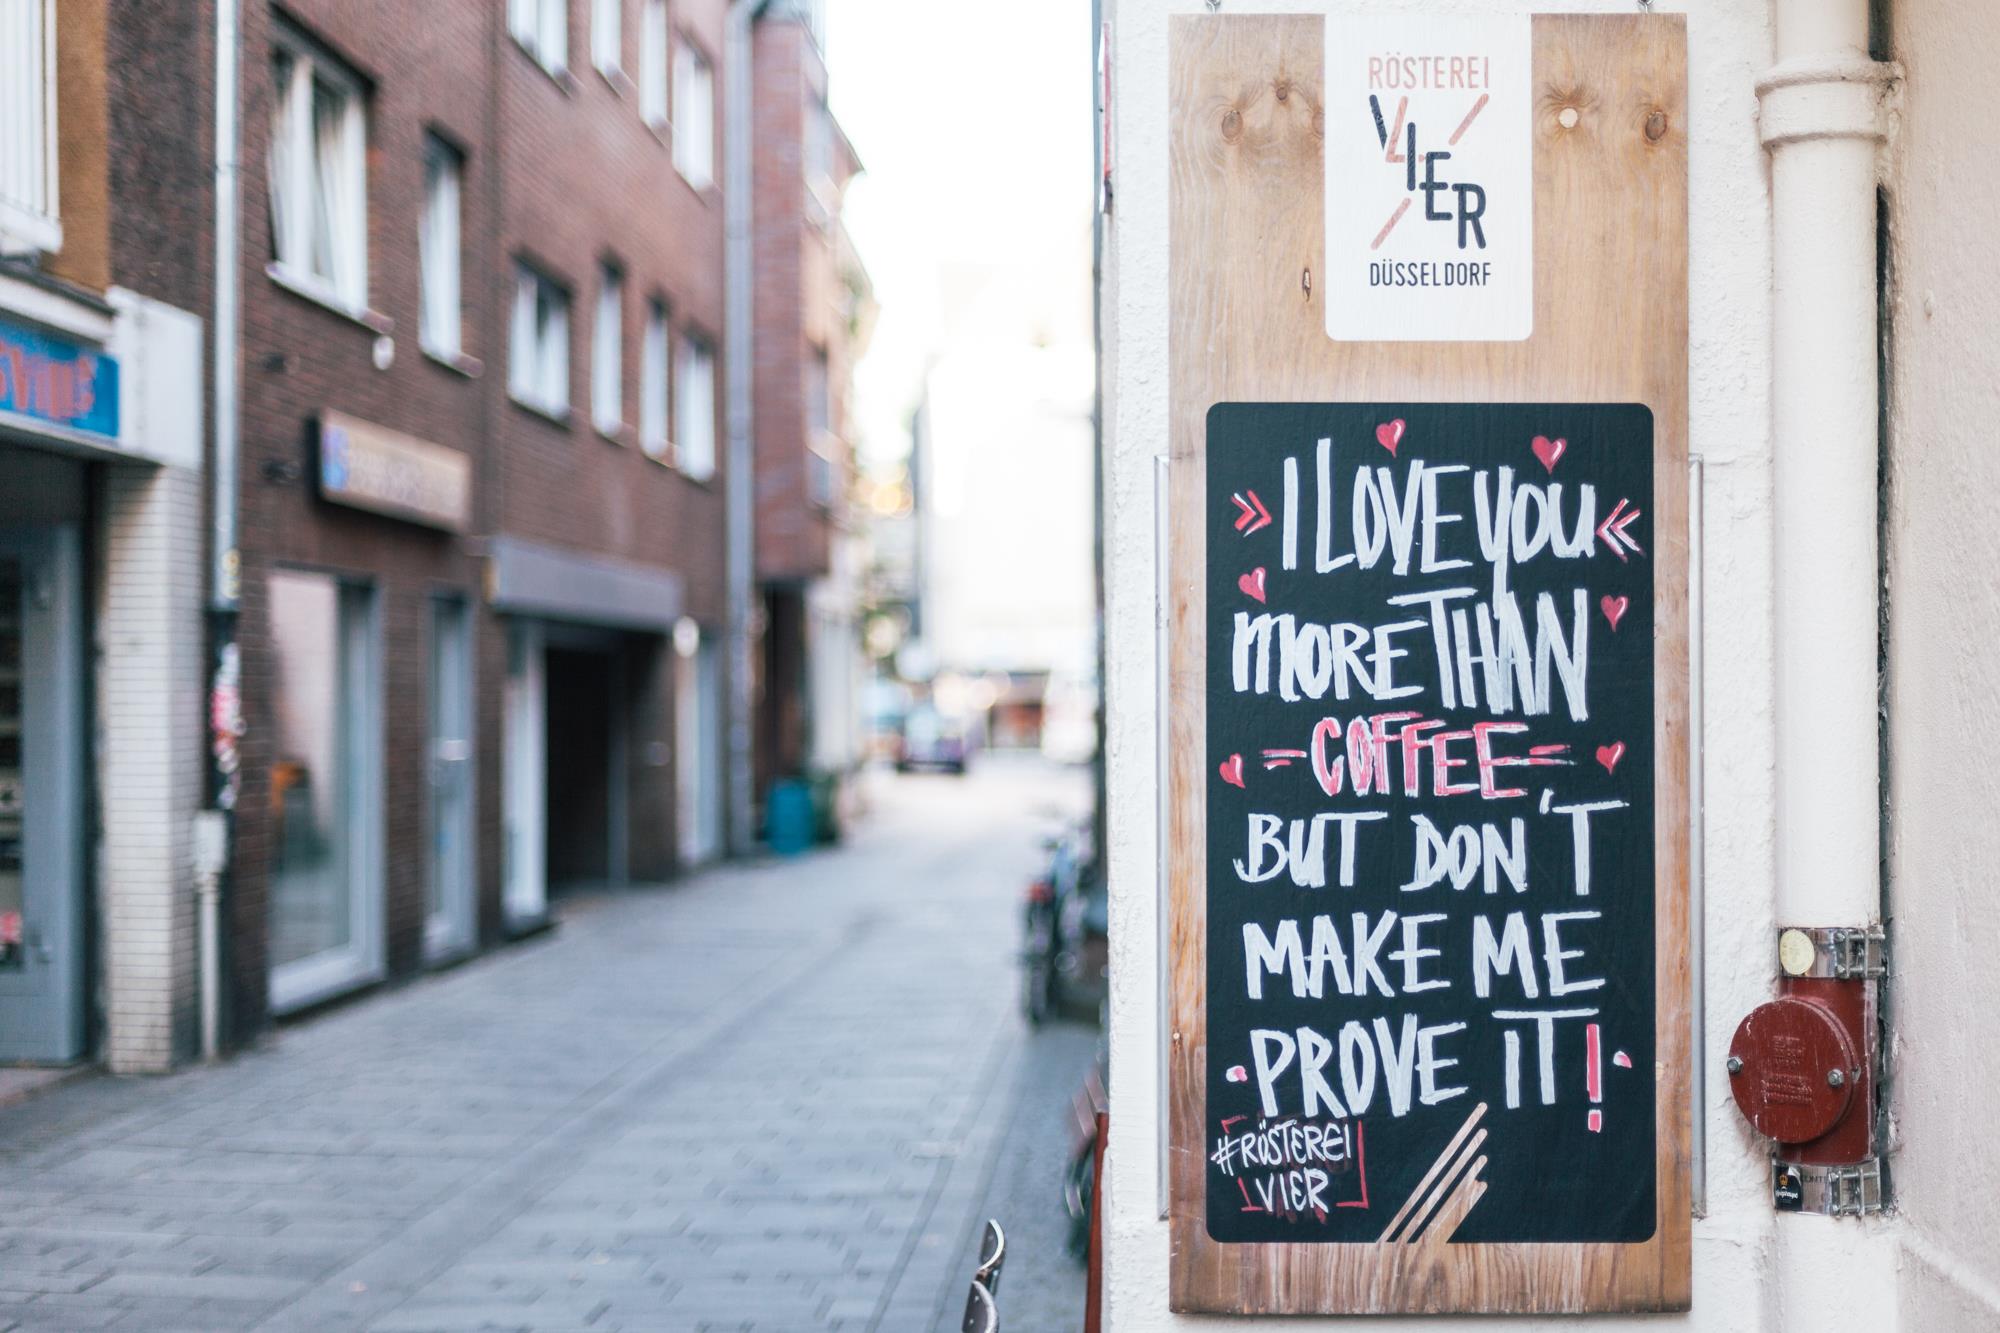 RÖSTEREI
VIER
DÜSSELDORF
I LOVE YOU
MORE THAN
COFFEE
BUT DON'T
MAKE ME
PROVE IT!
#RÖSTEREI
VIER